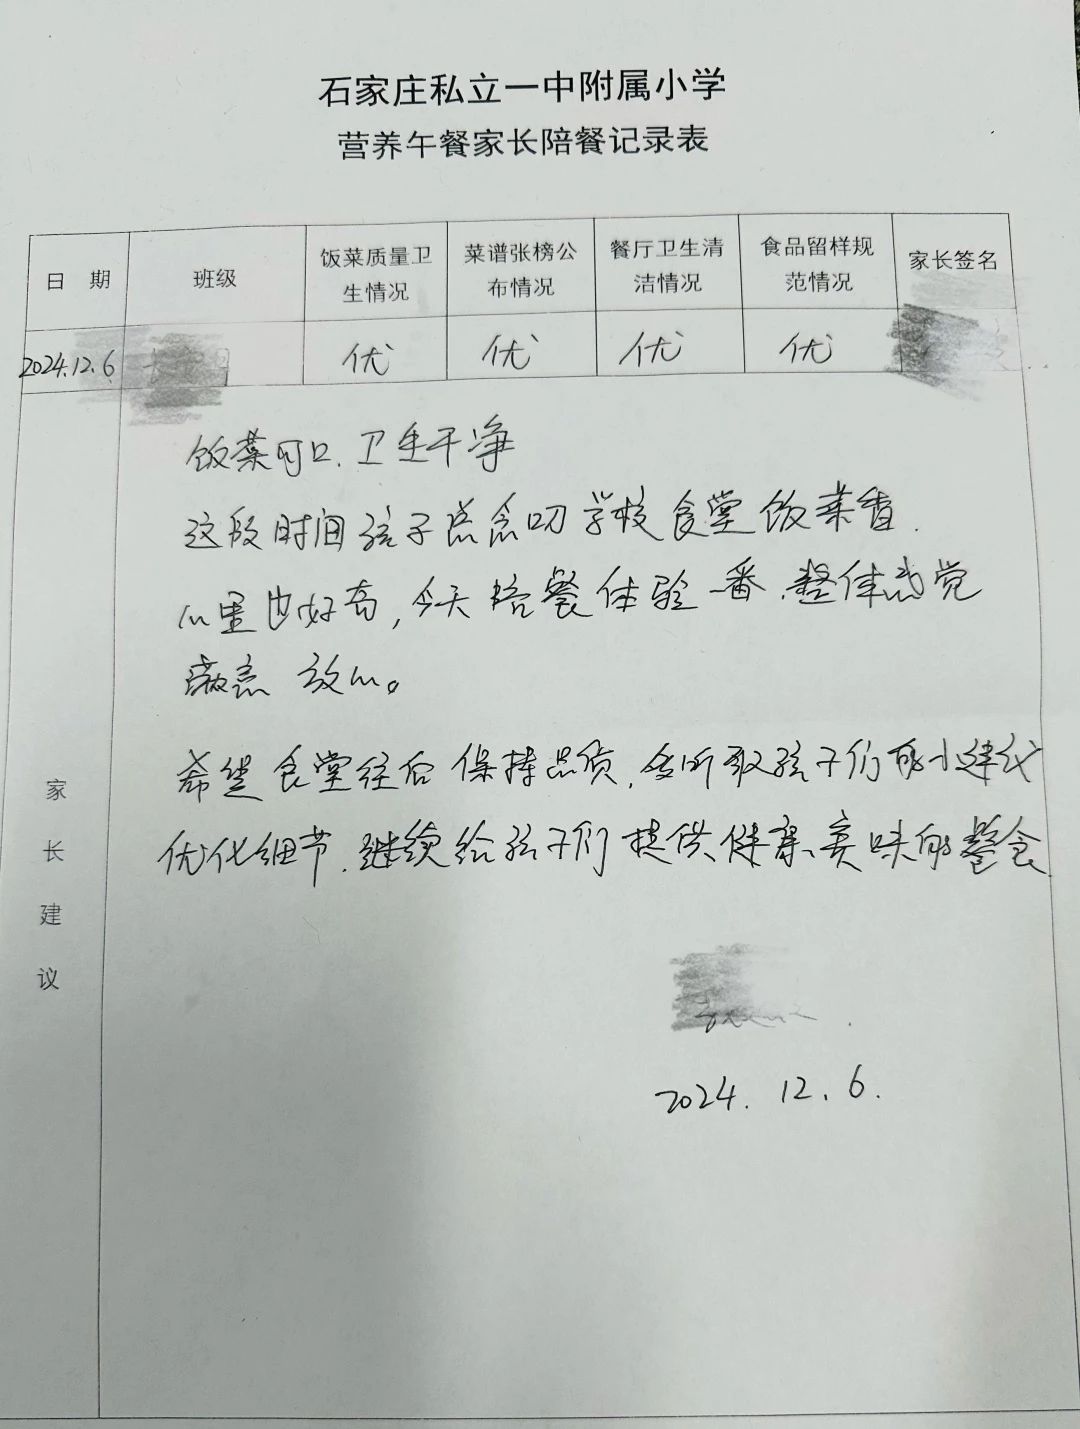 石家庄私立一中附属小学
营养午餐家长陪餐记录表
日 期 班级 饭菜质量卫生情况 菜谱张榜公布情况 餐厅卫生清洁情况 食品留样规范情况 家长签名
2024.12.6 优 优 优 优
家长建议
饭菜可口、卫生干净
这段时间孩子总念叨学校食堂饭菜香.
心里也好奇,今天陪餐体验一番.整体感觉
满意 放心。
希望食堂往后保持品质,多听取孩子们的小建议
优化细节.继续给孩子们提供健康、美味的餐食.
2024.12.6.